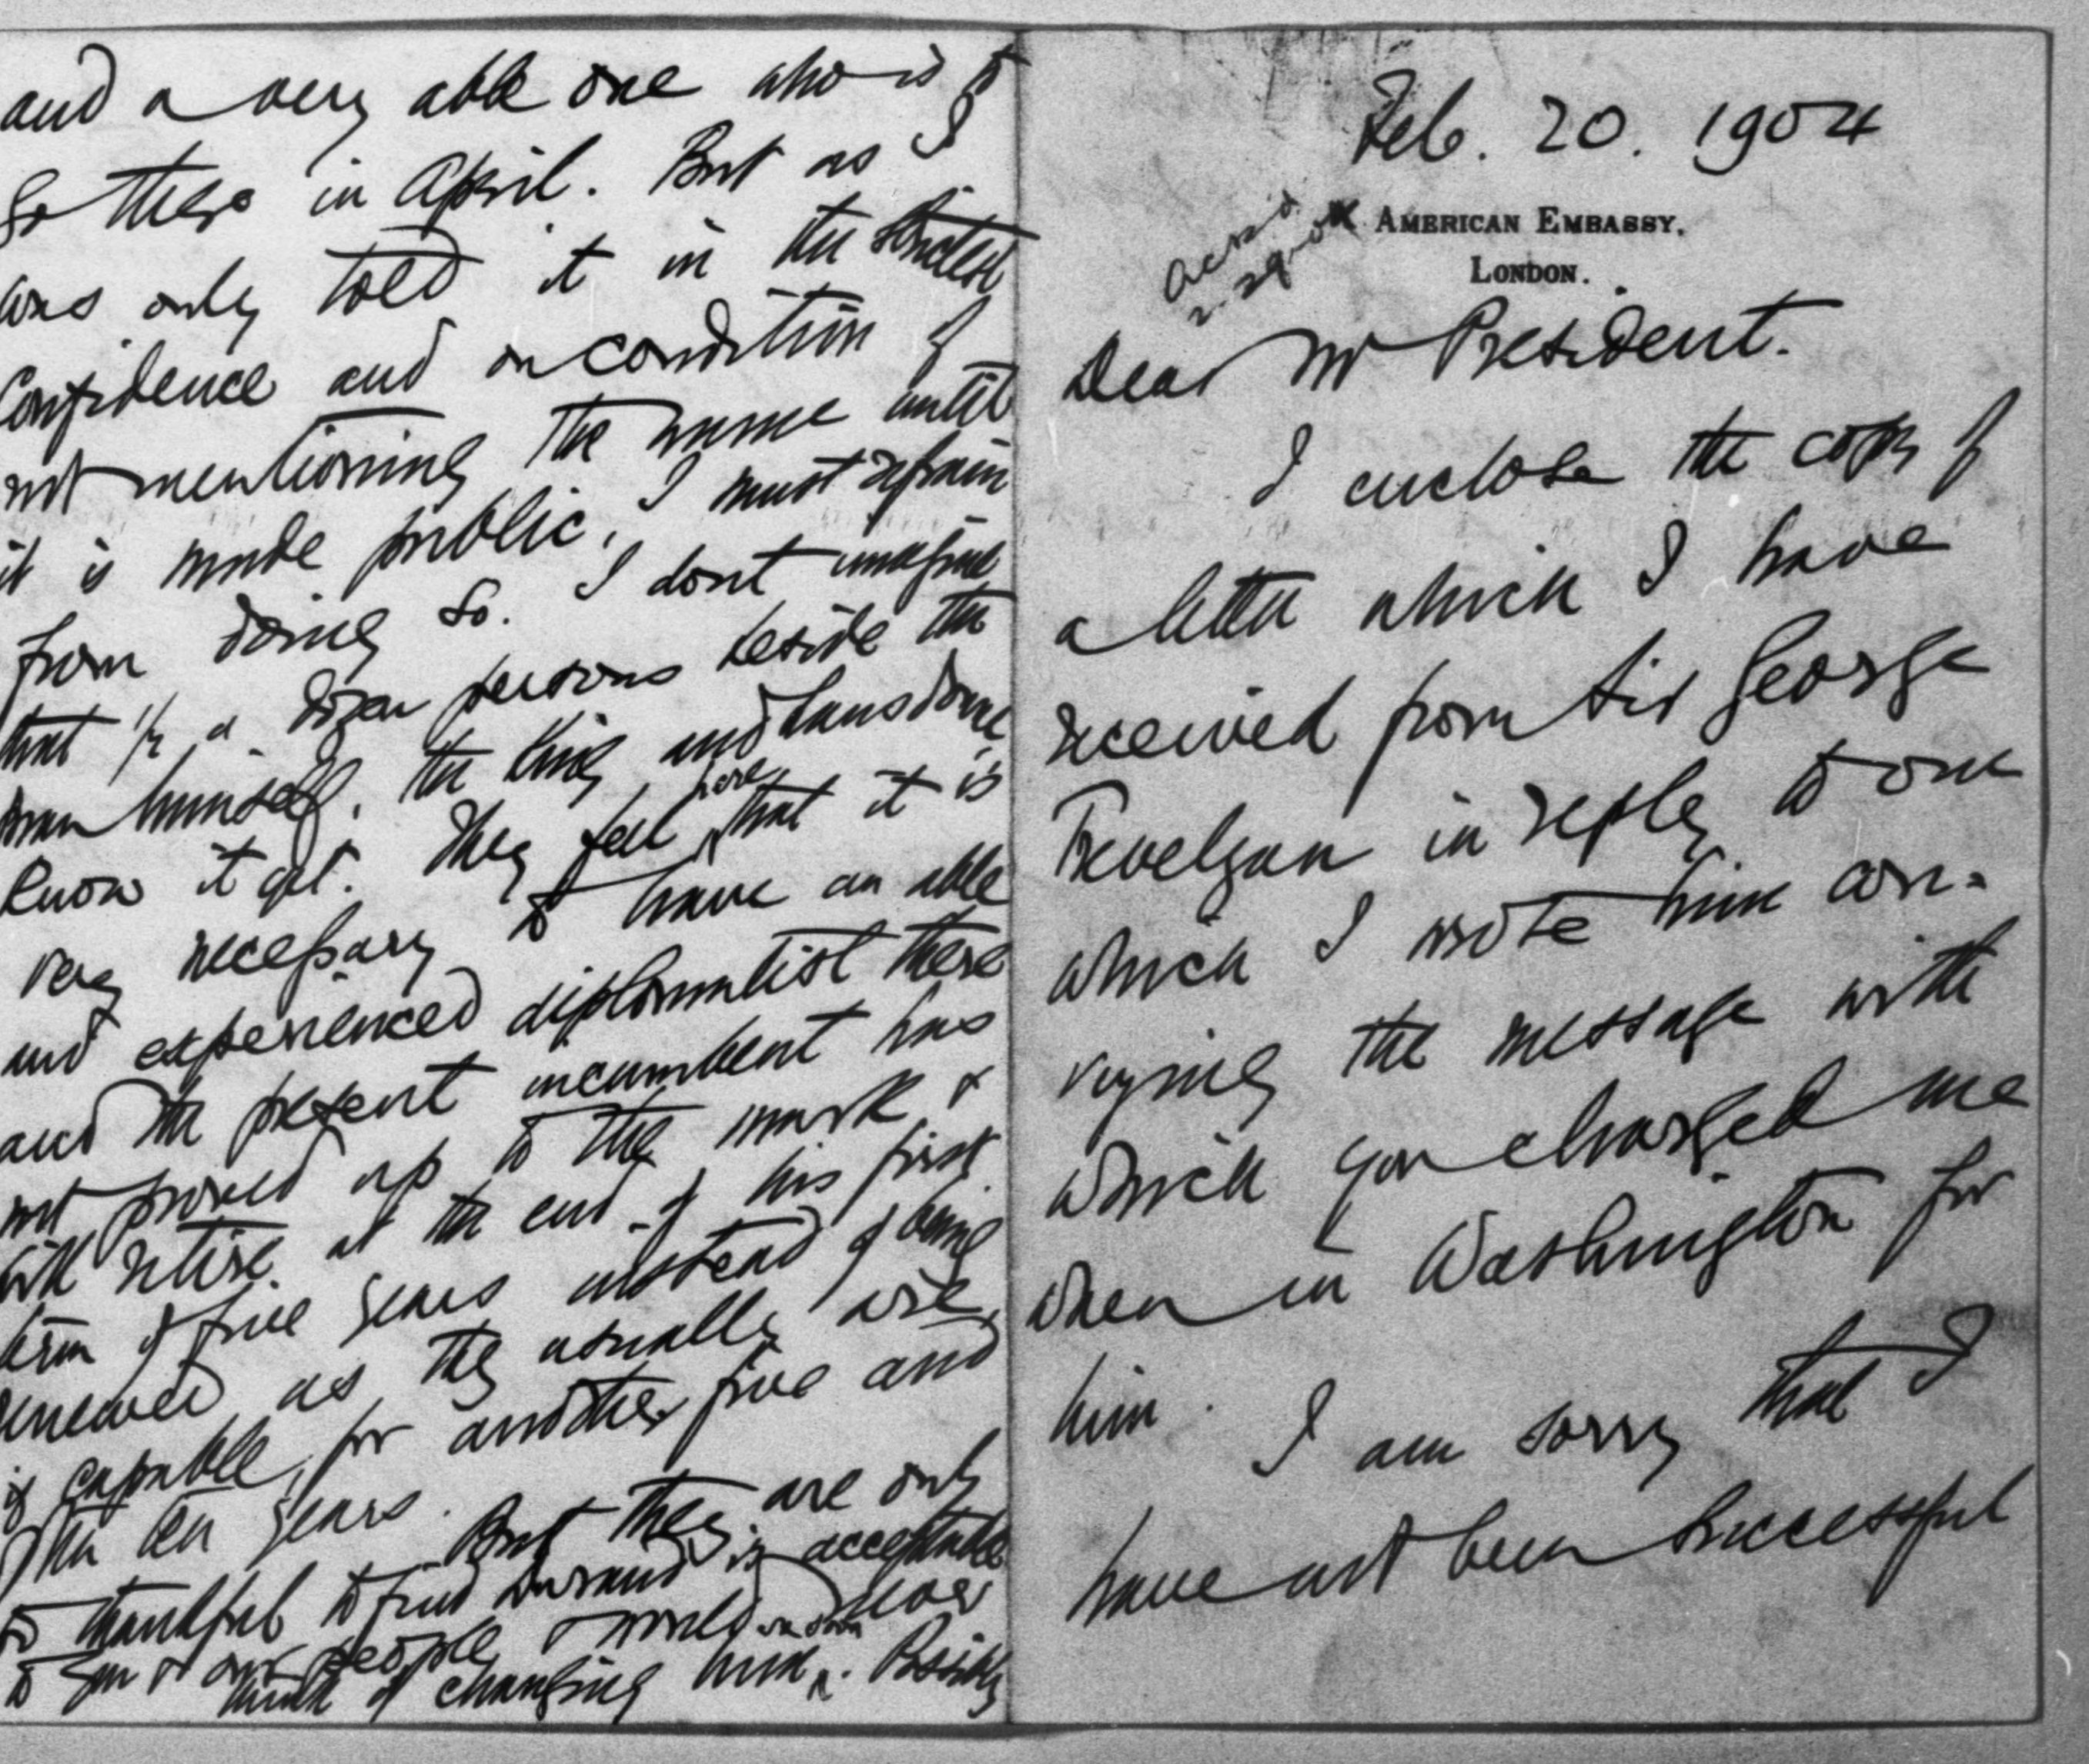 and a very able one who is to
go there in April. But as I
was only told it in the strictest
confidence and on condition of
not mentioning the name until
it is made public, I must refrain
from doing so. I dont imagine
that 1/2 a dozen persons beside the
man himself, the King and Lansdowne
know it yet. They feel here that it is
very necessary to have an able
and experienced diplomatist there
and the present incumbent has
not proved up to the mark &
will retire at the end of his first
term of five years instead of being
renewed as they usually are,
if capable, for another five and
then ten years. But they are only
too thankful to find Durand is acceptable
to you & our people & would never
think of changing him. Possibly
Feb. 20. 1904
Ackd
2-29-04
AMERICAN EMBASSY.
LONDON.
Dear Mr President.
I enclose the copy of
a letter which I have
received from Sir George
Trevelyan in reply to one
which I wrote him con-
veying the message with
which you charged me
when in Washington for
him. I am sorry that I
have not been successful